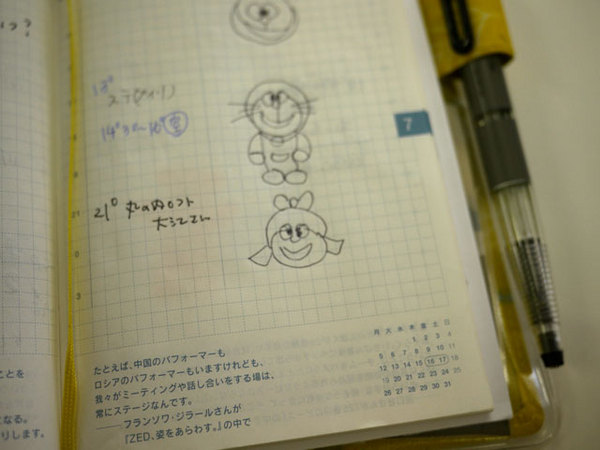 18°
7
21° 丸の内ロフト
21
0
3
月 火 水 木 金 土 日
1 2 3 4
5 6 7 8 9 10 11
12 13 14 15 16 17 18
19 20 21 22 23 24 25
26 27 28 29 30 31
たとえば、中国のパフォーマーも
ロシアのパフォーマーもいますけれども、
我々がミーティングや話し合いをする場は、
常にステージなんです。
——フランソワ・ジラールさんが
『ZED、姿をあらわす。』の中で
ことを
なる。
りします。